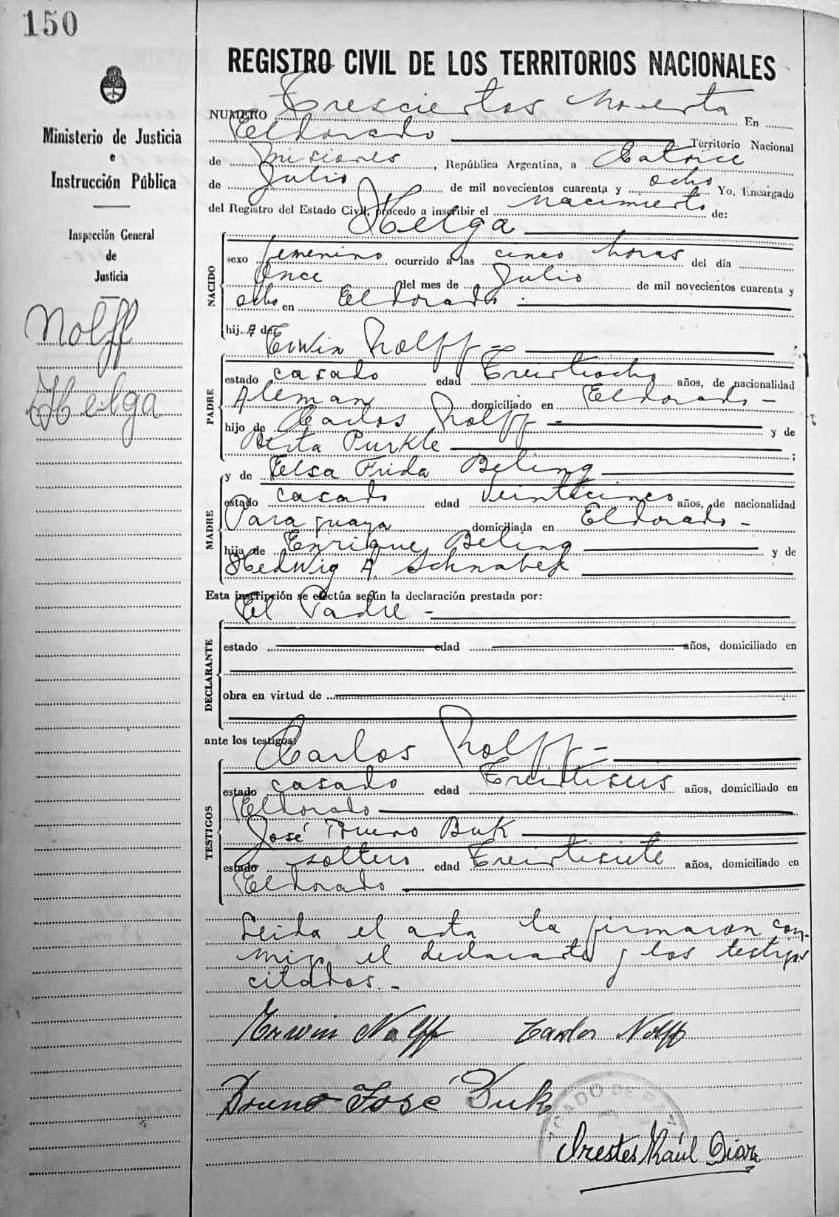 150
Ministerio de Justicia
e
Instrucción Pública
Inspección General
de
Justicia
Nolff
Helga
REGISTRO CIVIL DE LOS TERRITORIOS NACIONALES
NUMERO Trescientos Noventa En
Eldorado Territorio Nacional
de Misiones, República Argentina, a Catorce
de Julio de mil novecientos cuarenta y ocho Yo, Encargado
del Registro del Estado Civil, procedo a inscribir el nacimiento de:
Helga
NACIDO
sexo femenino ocurrido a las cinco horas del día
Once del mes de Julio de mil novecientos cuarenta y
ocho en Eldorado
hija de
Erwin Nolff
PADRE
estado casado edad Treintiocho años, de nacionalidad
Aleman domiciliado en Eldorado
hijo de Carlos Nolff y de
Berta Purkle ;
y de Elsa Frida Beling
MADRE
estado casada edad veinticinco años, de nacionalidad
Paraguaya domiciliada en Eldorado
hija de Enrique Beling y de
Hedwig A. Schnabel
Esta inscripción se efectúa según la declaración prestada por:
El Padre
DECLARANTE
estado edad años, domiciliado en
obra en virtud de
ante los testigos:
Carlos Nolff
TESTIGOS
estado casado edad Treintiseis años, domiciliado en
Eldorado
José Bruno Buk
estado soltero edad Treintisiete años, domiciliado en
Eldorado
Leida el acta la firmaron con-
migo el declarante y los testigos
citados.
Erwin Nolff Carlos Nolff
Bruno José Buk
Orestes Raúl Diaz